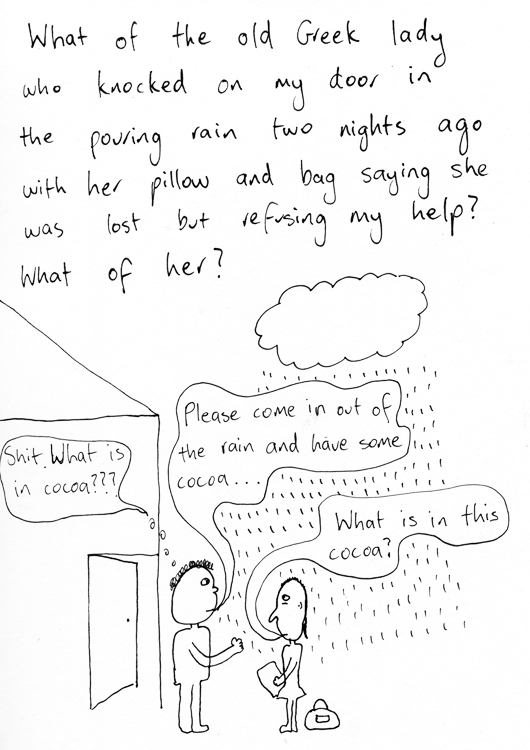 What of the old Greek lady
who knocked on my door in
the pouring rain two nights ago
with her pillow and bag saying she
was lost but refusing my help?
What of her?
Please come in out of
the rain and have some
cocoa...
Shit. What is
in cocoa???
What is in this
cocoa?